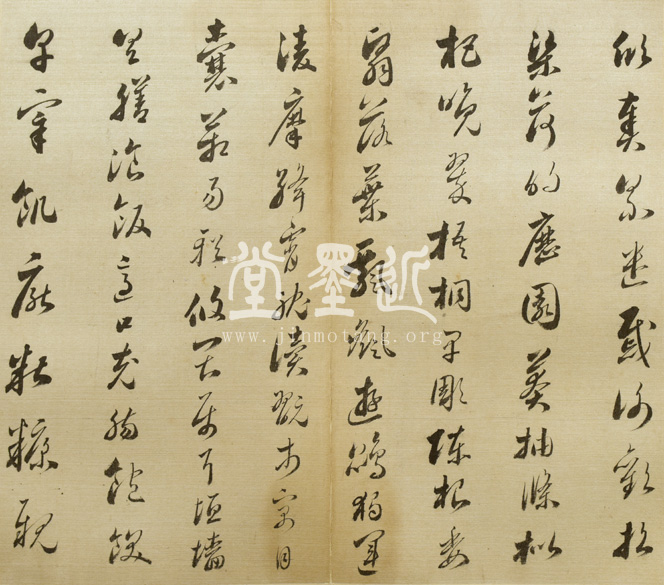 欣奏累遣慼謝歡招
渠荷的歷園莽抽條枇
杷晚翠梧桐早彫陳根委
翳落葉飄颻遊鵾獨運
凌摩絳霄耽讀翫市寓目
囊箱易輶攸畏屬耳垣墻
具膳飡飯適口充腸飽飫
烹宰飢厭糟糠親
近墨堂
www.jinmotang.org